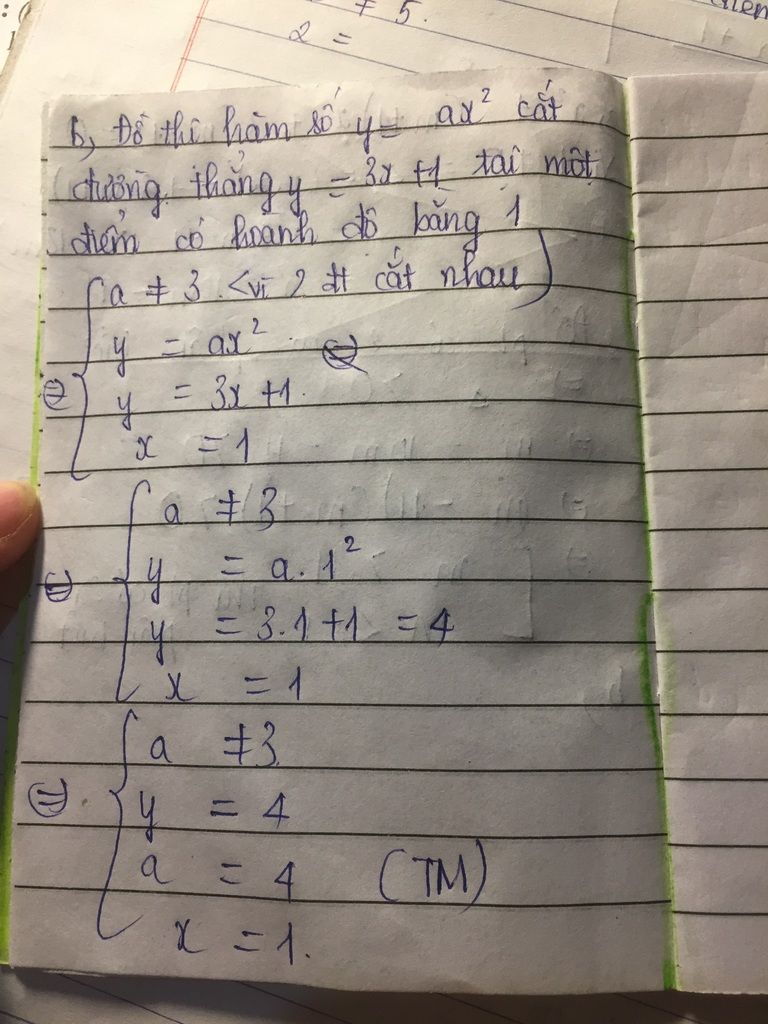 ≠ 5.
2 =
b, Đồ thị hàm số y = ax² cắt
đường thẳng y = 3x +1 tại một
điểm có hoành độ bằng 1
a ≠ 3 <vì 2 đt cắt nhau)
y = ax²
⇔ y = 3x +1
x = 1
a ≠ 3
⇔ y = a.1²
y = 3.1 +1 = 4
x = 1
a ≠ 3
⇔ y = 4
a = 4 (TM)
x = 1.